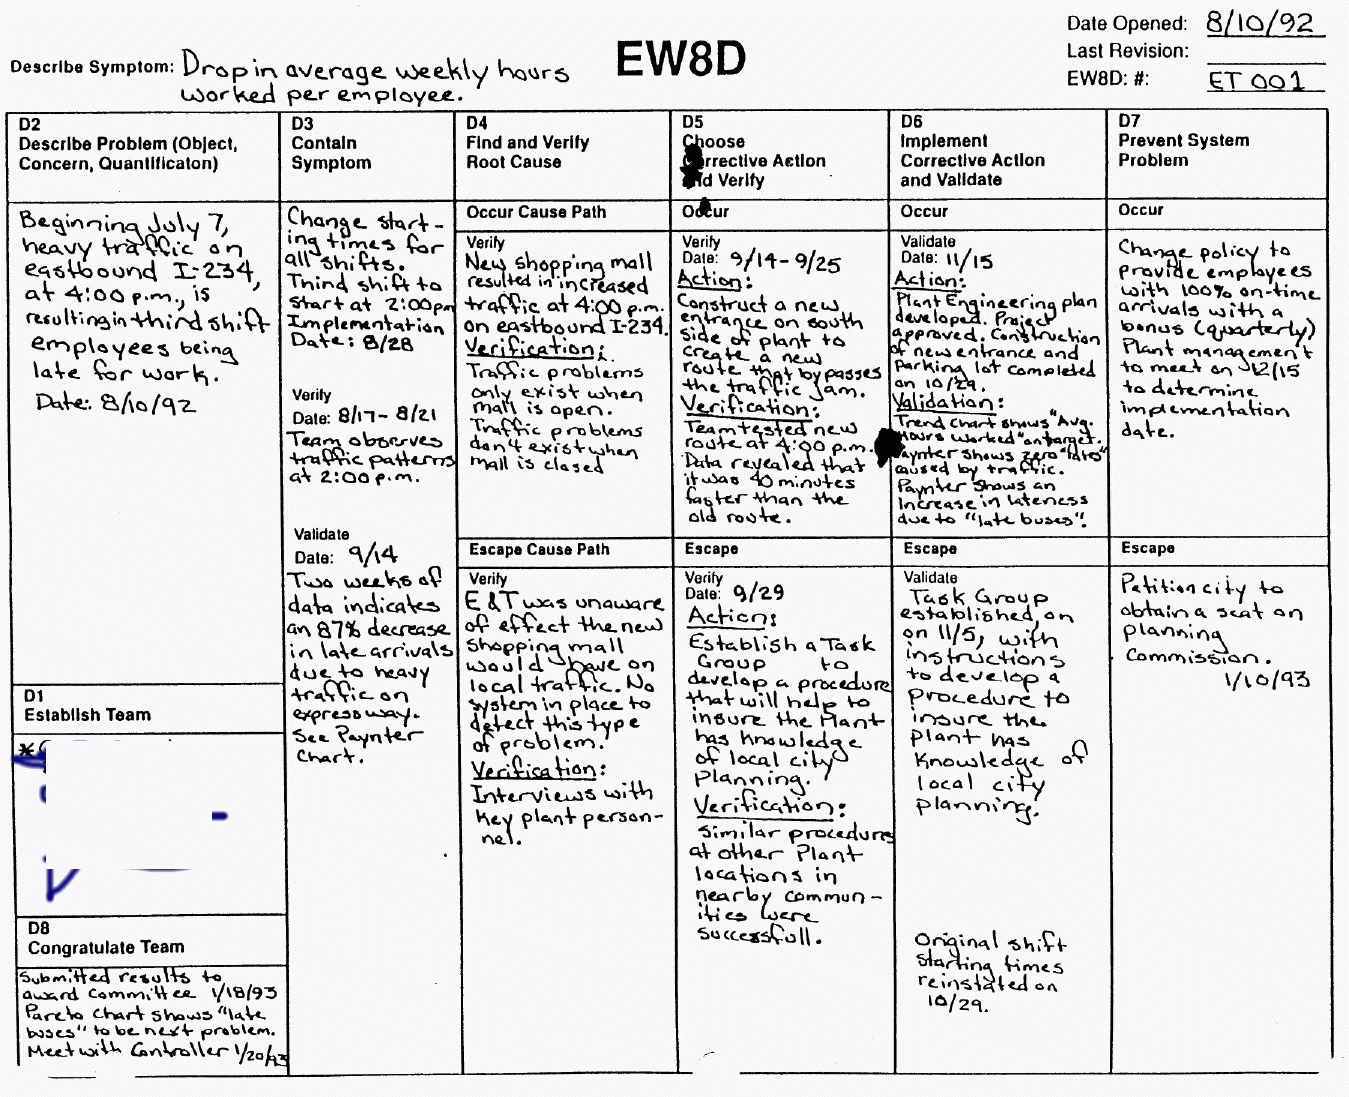 Date Opened: 8/10/92
Last Revision:
EW8D: #: ET 001
EW8D
Describe Symptom: Drop in average weekly hours
worked per employee.
D2
Describe Problem (Object,
Concern, Quantificaton)
Beginning July 7,
heavy traffic on
eastbound I-234,
at 4:00 p.m., is
resulting in third shift
employees being
late for work.
Date: 8/10/92
D1
Establish Team
*
D8
Congratulate Team
Submitted results to
award committee 1/18/93
Pareto chart shows "late
buses" to be next problem.
Meet with Controller 1/20/93
D3
Contain
Symptom
Change start-
ing times for
all shifts.
Third shift to
start at 2:00pm
Implementation
Date: 8/28
Verify
Date: 8/17- 8/21
Team observes
traffic patterns
at 2:00 p.m.
Validate
Date: 9/14
Two weeks of
data indicates
an 87% decrease
in late arrivals
due to heavy
traffic on
expressway.
See Paynter
Chart.
D4
Find and Verify
Root Cause
Occur Cause Path
Verify
New shopping mall
resulted in increased
traffic at 4:00 p.m.
on eastbound I-234.
Verification:
Traffic problems
only exist when
mall is open.
Traffic problems
don't exist when
mall is closed
Escape Cause Path
Verify
E&T was unaware
of effect the new
shopping mall
would have on
local traffic. No
system in place to
detect this type
of problem.
Verification:
Interviews with
key plant person-
nel.
D5
Choose
Corrective Action
and Verify
Occur
Verify
Date: 9/14-9/25
Action:
Construct a new
entrance on south
side of plant to
create a new
route that bypasses
the traffic jam.
Verification:
Team tested new
route at 4:00 p.m.
Data revealed that
it was 40 minutes
faster than the
old route.
Escape
Verify
Date: 9/29
Action:
Establish a Task
Group to
develop a procedure
that will help to
insure the Plant
has knowledge
of local city
planning.
Verification:
Similar procedures
at other Plant
locations in
nearby commun-
ities were
successfull.
D6
Implement
Corrective Action
and Validate
Occur
Validate
Date: 11/15
Action:
Plant Engineering plan
developed. Project
approved. Construction
of new entrance and
parking lot completed
on 10/29.
Validation:
Trend chart shows "Avg.
Hours Worked" on target.
Paynter shows zero "lates"
caused by traffic.
Paynter shows an
increase in lateness
due to "late buses".
Escape
Validate
Task Group
established, on
on 11/5, with
instructions
to develop a
procedure to
insure the
plant has
knowledge of
local city
planning.
Original shift
starting times
reinstated on
10/29.
D7
Prevent System
Problem
Occur
Change policy to
provide employees
with 100% on-time
arrivals with a
bonus (quarterly)
Plant management
to meet on 12/15
to determine
implementation
date.
Escape
Petition city to
obtain a seat on
planning
commission.
1/10/93